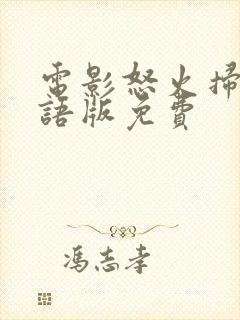 電影怒火掃
語版免費
馮志孝